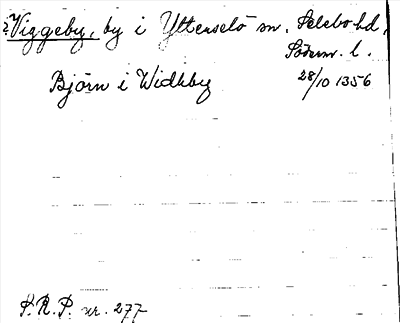 ? Viggeby, by i Ytterselö sn, Selebo hd,
Söderm. l.
Björn i Widhby
28/10 1356
S.R.P. nr. 277